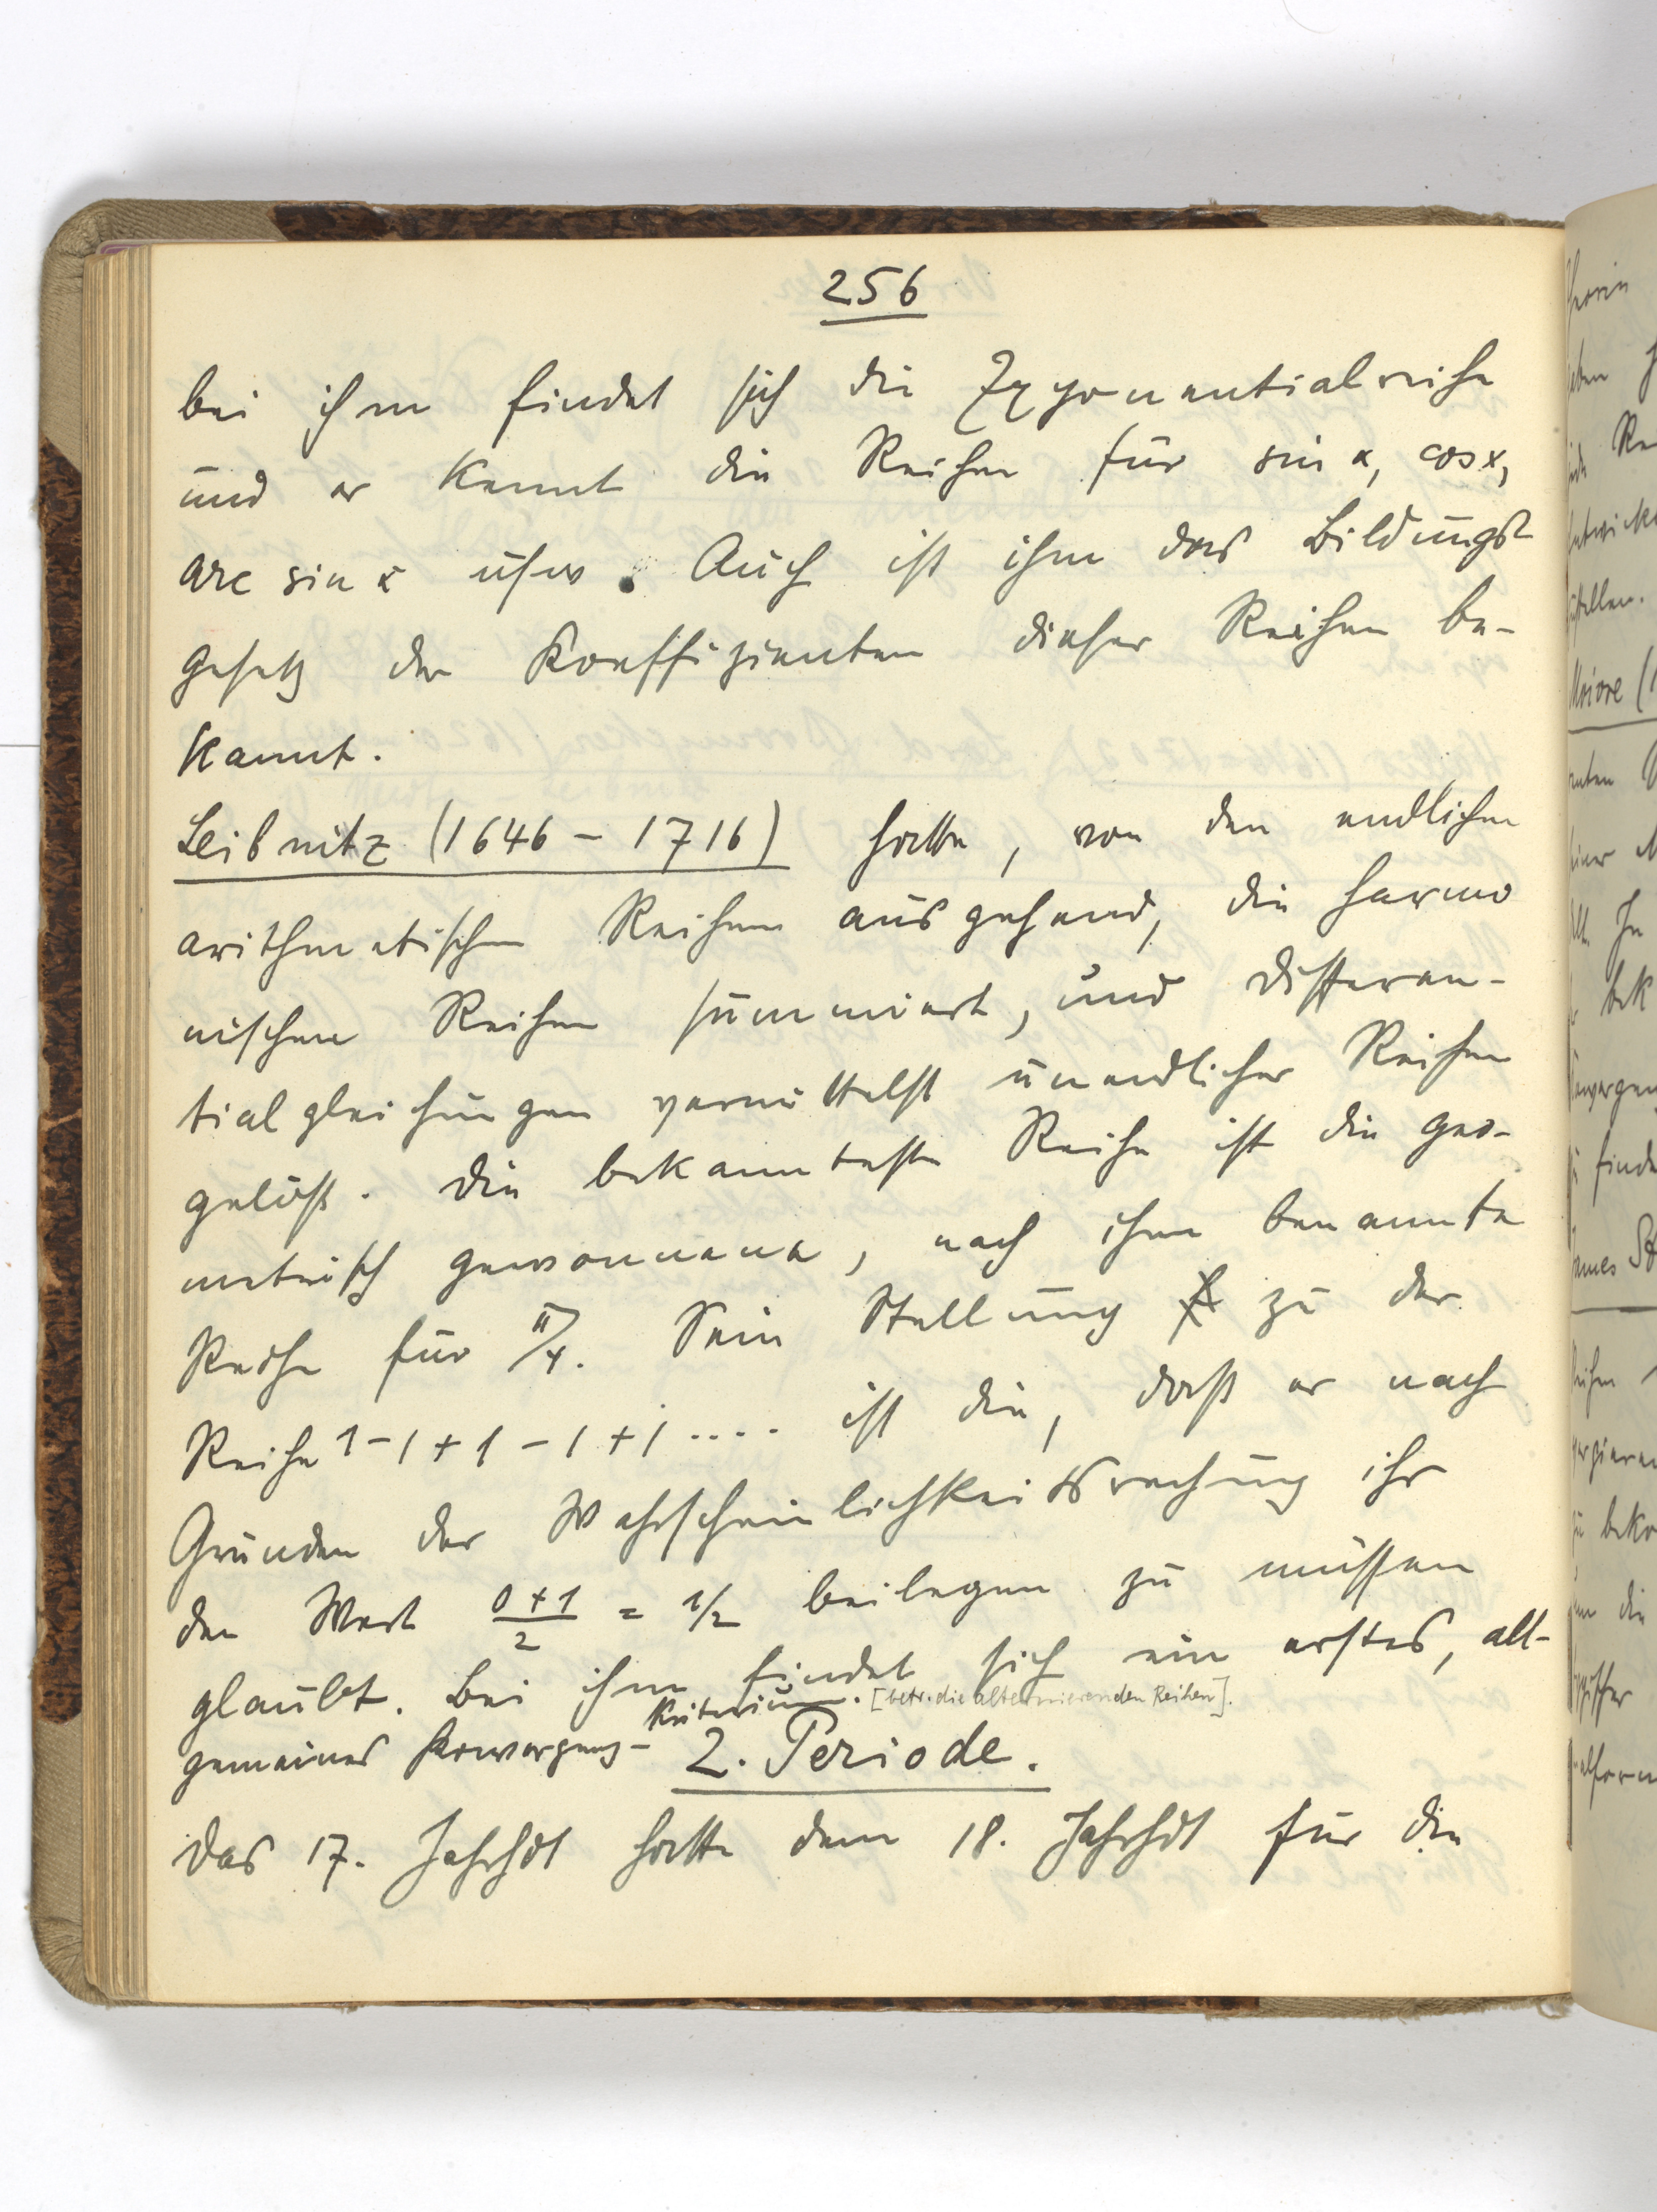 256
bei ihm findet sich die Exponentialreihe
und er kennt die Reihen für sin x, cos x,
arc sin x usw. Auch ist ihm das Bildungs-
gesetz der Koeffizienten dieser Reihen be-
kannt.
Leibnitz (1646 – 1716) hatte, von den endlichen
arithmetischen Reihen ausgehend, die harmo
nischen Reihen summiert, und Differen-
tialgleichungen vermittelst unendlicher Reihen
gelöst. Die bekannteste Reihe ist die geo-
metrisch gewonnene, nach ihm benannte
Reihe für π/4. Sein Stellung zu der
Reihe 1 – 1 + 1 – 1 + 1 .... ist die, dass er nach
Gründen der Wahrscheinlichkeitsrechung ihr
den Wert (0+1)/2 = 1/2 beilegen zu müssen
glaubt. Bei ihm findet sich ein erstes, all-
gemeines Konvergenz-Kriterium. [betr. die alternierenden Reihen].
2. Periode.
Das 17. Jahrhdt hatte dem 18. Jahrhdt für die